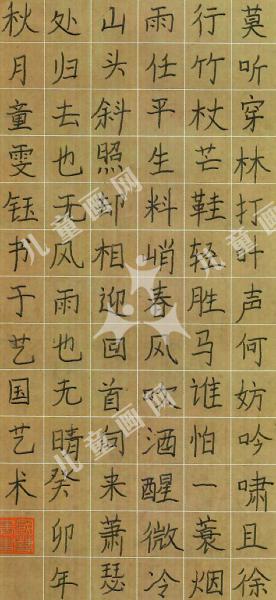 莫听穿林打叶声何妨吟啸且徐
行竹杖芒鞋轻胜马谁怕一蓑烟
雨任平生料峭春风吹酒醒微冷
山头斜照却相迎回首向来萧瑟
处归去也无风雨也无晴癸卯年
秋月童雯钰书于艺国艺术
儿童画网
儿童画网
儿童画网
儿童画网